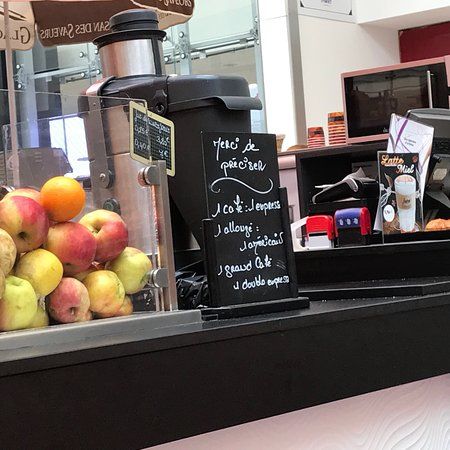 SAN DES SAVEURS
Merci de
préciser
1 café : 1 express
1 allongé :
1 américain
1 grand Café
1 double express
Latte
Mist